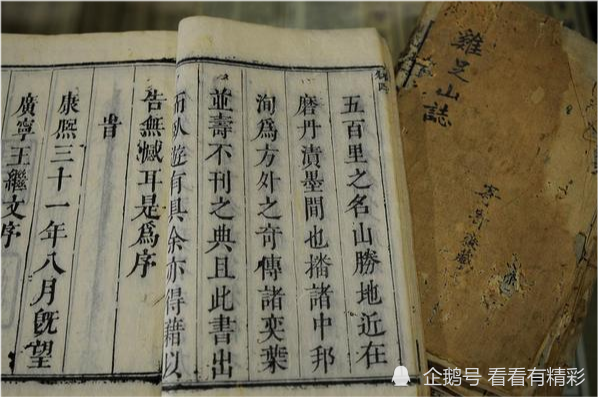 雞足山誌
五百里之名山勝地近在
磨丹漬墨間也播諸中邦
洵爲方外之奇傳諸奕葉
並壽不刊之典且此書出
而臥遊有具余亦得藉以
告無憾耳是爲序
旹
康熙三十一年八月旣望
廣寧王繼文序
企鹅号 看看有精彩